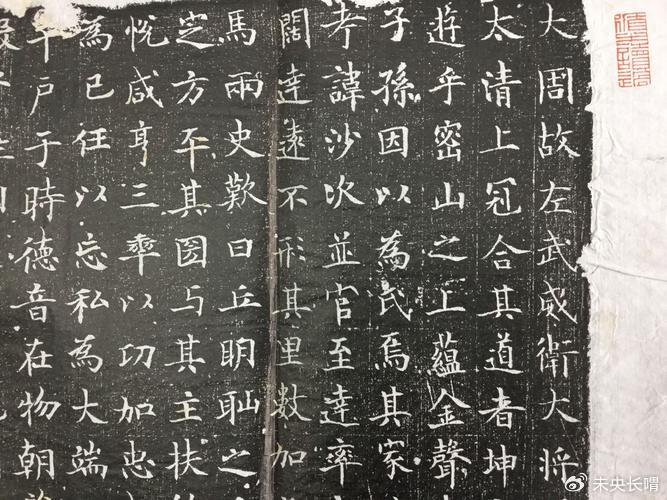 大周故左武威衛大將
太清上冠合其道者坤
遊乎密山之上蘊金聲
子孫因以為氏焉其家
考諱沙次並官至達率
闊達遠不形其里數加
馬兩史歎曰丘明恥之
定方平其圀与其主扶
悅咸亨三年以功加忠
為己任以忘私為大端
千戶于時德音在物朝
未央长喟